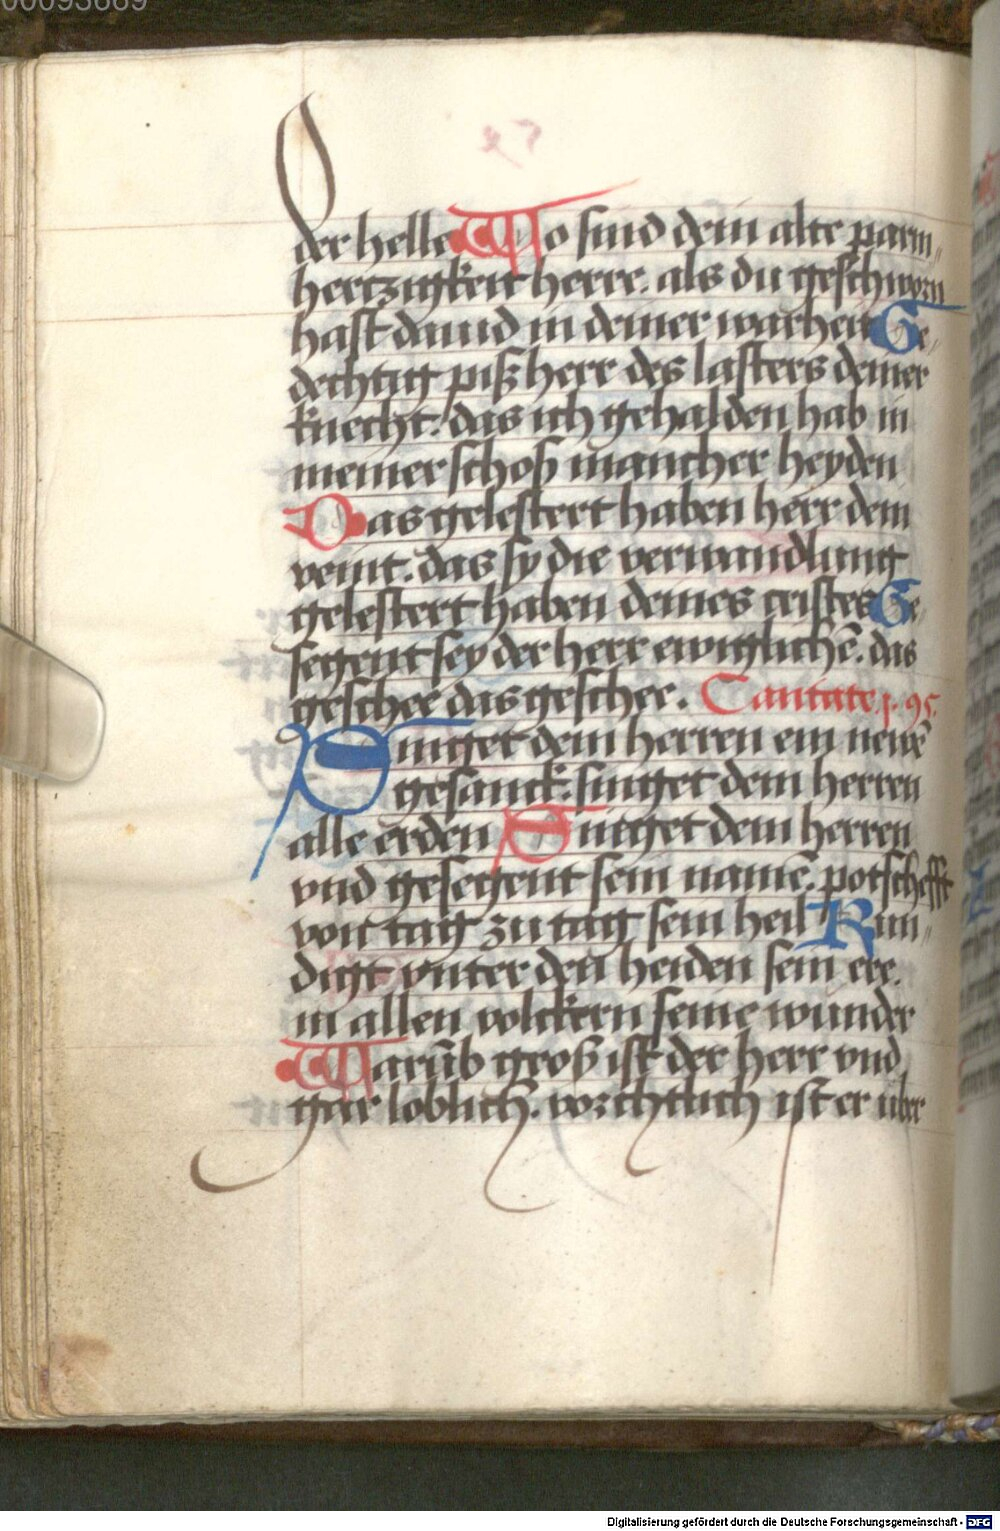 00093669
der helle Wo sind dein alte parm„
hertzigkeit herre. als du geschworn
hast dauid in deiner warheit Ge„
dechtig piß herr des lasters deiner
knecht: das ich gehalden hab in
meiner schoß mancher heyden
Das gelestert haben herr dein
veint. das sy die verwandlung
gelestert haben deines cristes Ge„
segent sey der herr ewiglichē. das
geschee das geschee. Cantate. p. 95.
Singet dem herren ein neuē
gesanck: singet dem herren
alle erden Singet dem herren
vnd gesegent sein namē. potschefft
von tag zu tag sein heil Kun„
digt vnter den heiden sein ere.
in allen volckern seine wunder
Warūb groß ist der herr vnd
gar loblich. vorchtlich ist er uber
Digitalisierung gefördert durch die Deutsche Forschungsgemeinschaft - DFG